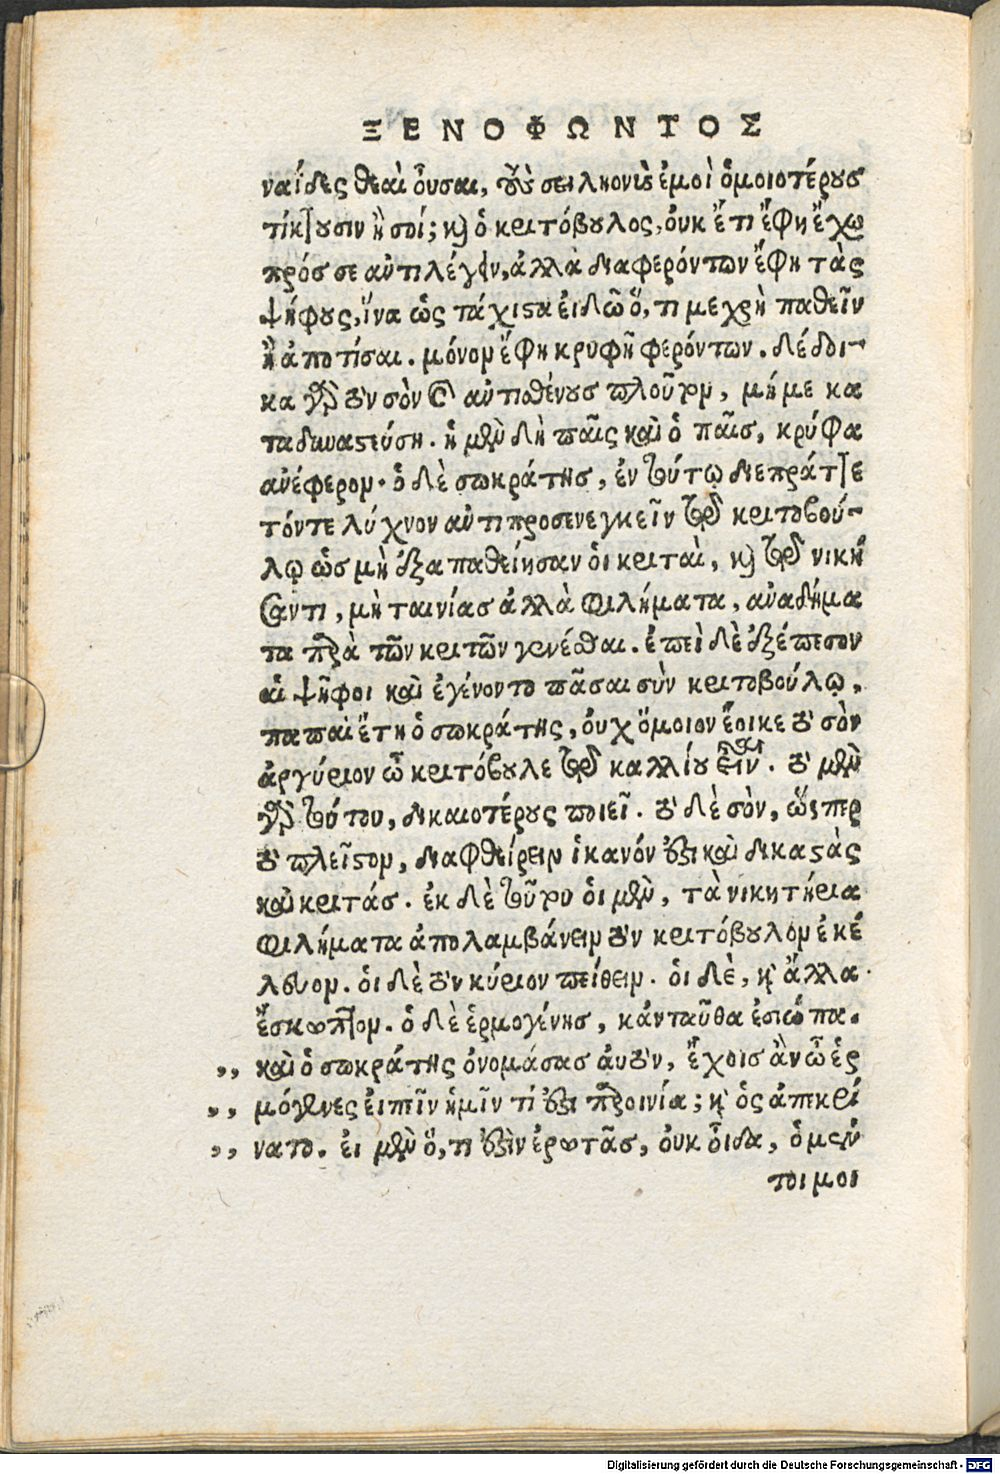 ΞΕΝΟΦΩΝΤΟΣ
ναΐδες θεαὶ οὖσαι, τοὺς σειληνοὺς ἐμοὶ ὁμοιοτέρους
τίκτουσιν ἢ σοί; καὶ ὁ κριτόβουλος, οὐκ ἔτι ἔφη ἔχω
πρός σε ἀντιλέγειν, ἀλλὰ διαφερόντων ἔφη τὰς
ψήφους, ἵνα ὡς τάχιστα εἰδῶ ὅ, τι με χρὴ παθεῖν
ἢ ἀποτίσαι. μόνον ἔφη κρυφῇ φερόντων. δέδοι-
κα γὰρ τὸν σὸν καὶ ἀντισθένους πλοῦτον, μή με κα
ταδυναστεύσῃ. ἡ μὲν δὴ παῖς καὶ ὁ παῖς, κρύφα
ἀνέφερον. ὁ δὲ σωκράτης, ἐν τούτῳ διεπράττε
τόν τε λύχνον ἀντιπροσενεγκεῖν τῷ κριτοβού-
λῳ ὡς μὴ ἐξαπαθείησαν οἱ κριταὶ, καὶ τῷ νική
σαντι, μὴ ταινίας ἀλλὰ φιλήματα, ἀναδήμα
τα παρὰ τῶν κριτῶν γενέσθαι. ἐπεὶ δὲ ἐξέπεσον
αἱ ψῆφοι καὶ ἐγένοντο πᾶσαι σὺν κριτοβούλῳ,
παπαὶ ἔφη ὁ σωκράτης, οὐχ ὅμοιον ἔοικε τὸ σὸν
ἀργύριον ὦ κριτόβουλε τῷ καλλίου εἶναι. τὸ μὲν
γὰρ τούτου, δικαιοτέρους ποιεῖ. τὸ δὲ σὸν, ὥσπερ
τὸ πλεῖστον, διαφθείρειν ἱκανόν ἐστι καὶ δικαστὰς
καὶ κριτάς. ἐκ δὲ τούτου οἱ μὲν, τὰ νικητήρια
φιλήματα ἀπολαμβάνειν τὸν κριτόβουλον ἐκέ
λευον. οἱ δὲ τὸν κύριον πείθειν. οἱ δὲ, καὶ ἄλλα
ἔσκωπτον. ὁ δὲ ἑρμογένης, κἀνταῦθα ἐσιώπα.
,, καὶ ὁ σωκράτης ὀνομάσας αὐτὸν, ἔχοις ἂν ὦ ἑρ
,, μόγενες εἰπεῖν ἡμῖν τί ἐστι παροινία; καὶ ὃς ἀπεκρί
,, νατο. εἰ μὲν ὅ, τι ἐστὶν ἐρωτᾷς, οὐκ οἶδα, ὃ μέν
τοι μοι
Digitalisierung gefördert durch die Deutsche Forschungsgemeinschaft - DFG